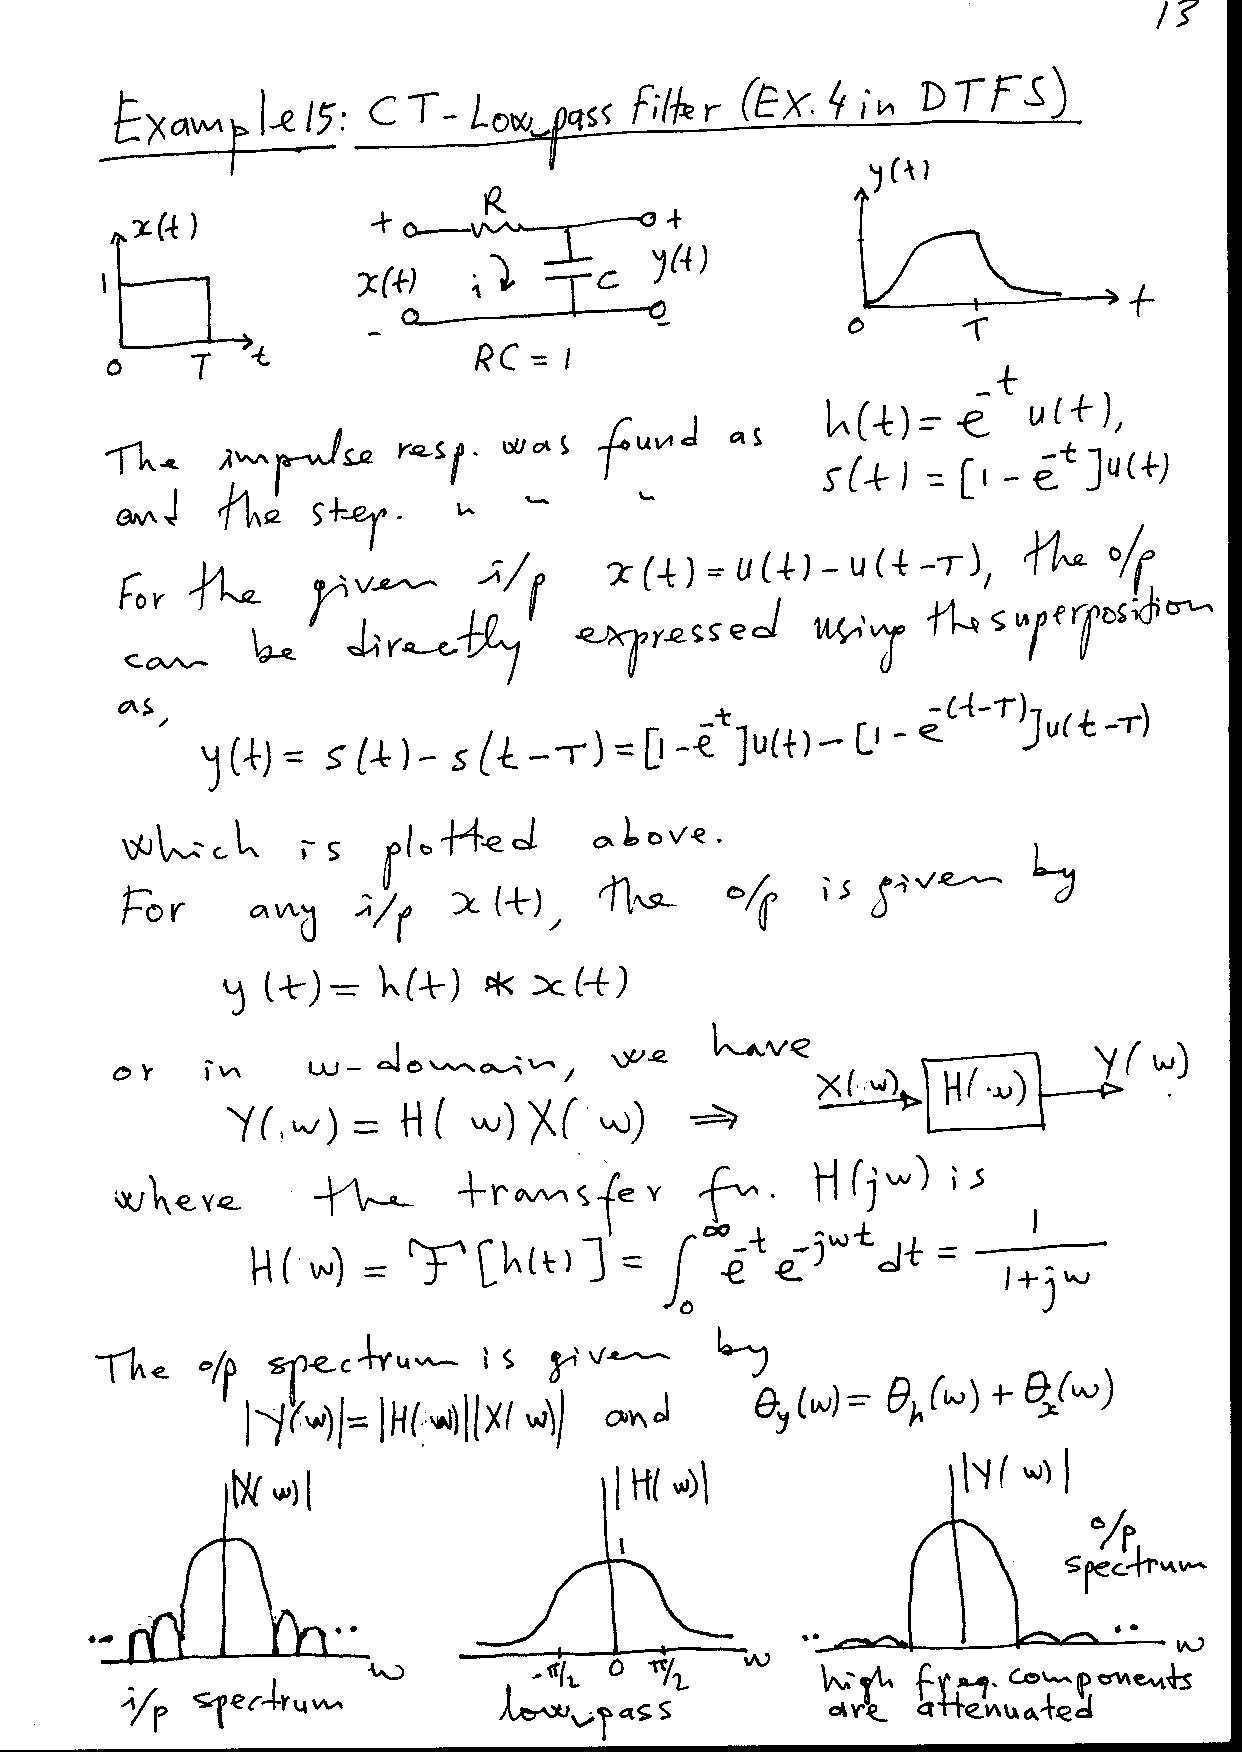 13
Example 15: CT-Low pass Filter (EX. 4 in DTFS)
x(t)
1
0 T t
+ R +
x(t) i C y(t)
- -
RC = 1
y(t)
0 T t
The impulse resp. was found as h(t) = e^-t u(t),
and the step. " " " s(t) = [1 - e^-t]u(t)
For the given i/p x(t) = u(t) - u(t-T), the o/p
can be directly expressed using the superposition
as,
y(t) = s(t) - s(t-T) = [1-e^-t]u(t) - [1-e^-(t-T)]u(t-T)
which is plotted above.
For any i/p x(t), the o/p is given by
y(t) = h(t) * x(t)
or in w-domain, we have
X(w) H(w) Y(w)
Y(w) = H(w)X(w) ⇒
where the transfer fn. H(jw) is
H(w) = F[h(t)] = ∫_0^∞ e^-t e^-jwt dt = 1/(1+jw)
The o/p spectrum is given by
|Y(w)| = |H(w)||X(w)| and θ_y(w) = θ_h(w) + θ_x(w)
|X(w)| |H(w)| |Y(w)|
1 o/p
spectrum
.. .. w -π/2 0 π/2 w .. .. w
i/p spectrum low pass high freq. components
are attenuated